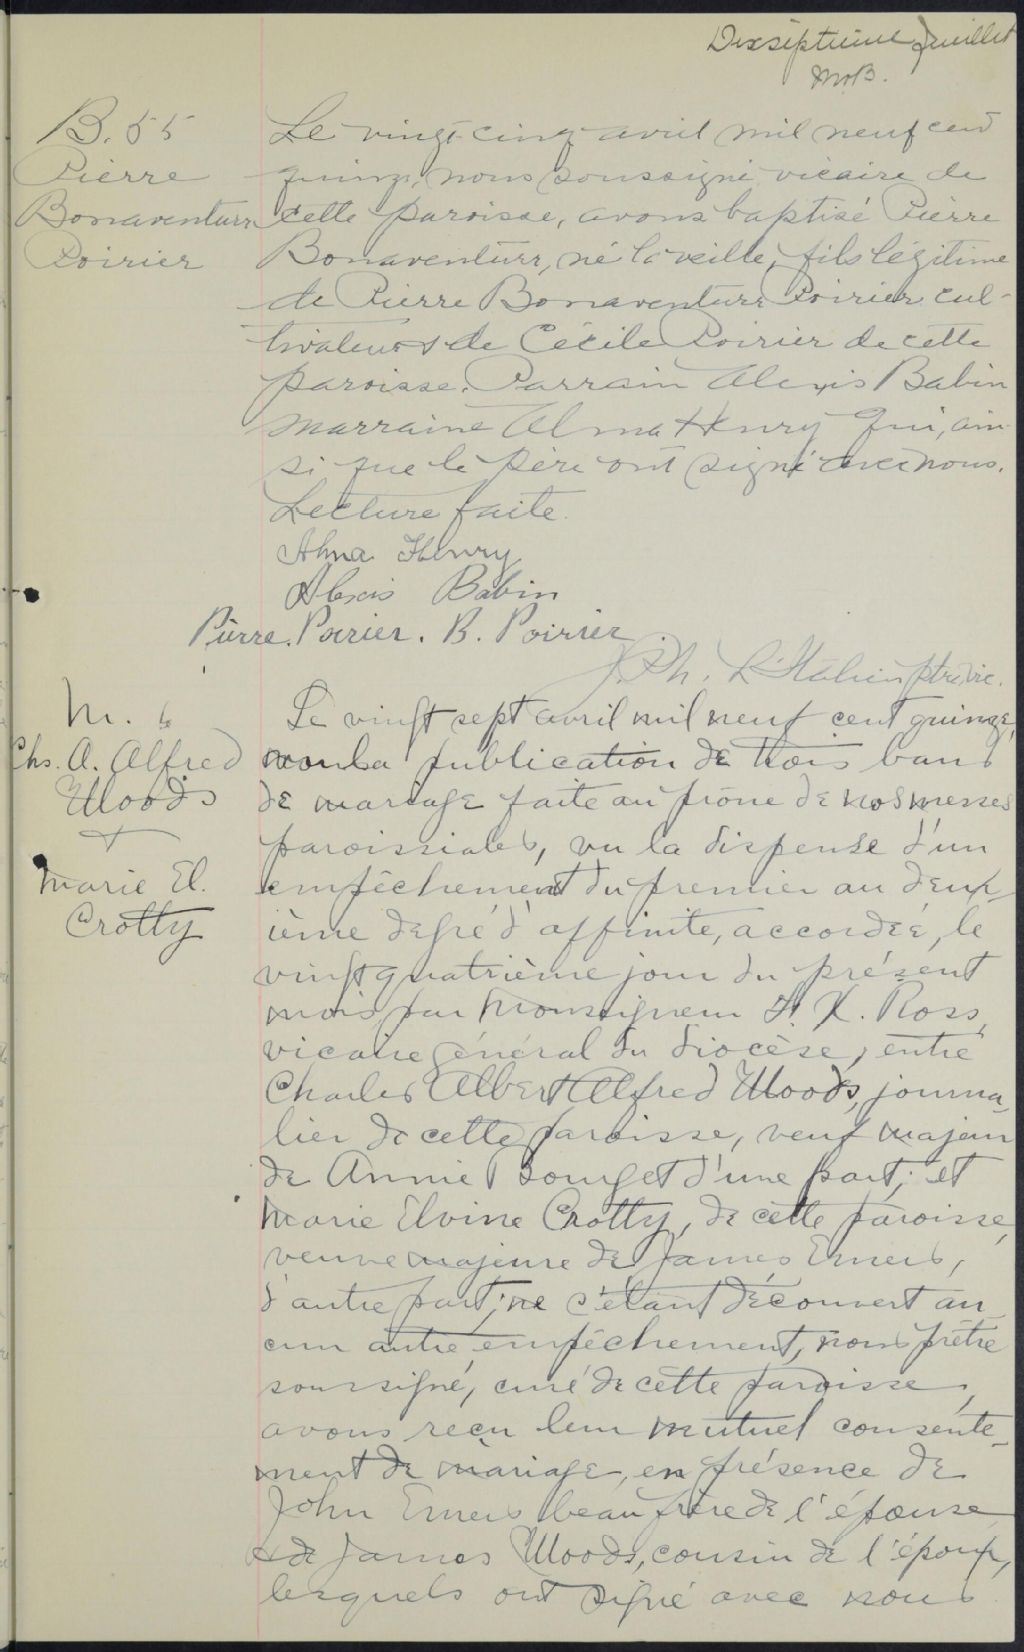 Dixseptième feuillet
MrB.
B. 55
Pierre
Bonaventure
Poirier
Le vingt-cinq avril mil neuf cent
quinze, nous soussigné vicaire de
cette paroisse, avons baptisé Pierre
Bonaventure, né la veille, fils légitime
de Pierre Bonaventure Poirier cul-
tivateur & de Cécile Poirier de cette
paroisse. Parrain Alexis Babin
marraine Alma Henry qui, ain-
si que le père ont signé avec nous.
Lecture faite.
Alma Henry
Alexis Babin
Pierre. Poirier. B. Poirier
J. Ph. L'Italien ptre vic.
M. 6
Chs. A. Alfred
Woods
+
Marie El.
Crotty
Le vingt sept avril mil neuf cent quinze,
vu la publication de trois bans
de mariage faite au prône de nos messes
paroissiales, vu la dispense d'un
empêchement du premier au deux-
ième degré d'affinité, accordée, le
vingt quatrième jour du présent
mois, par Monseigneur F. X. Ross,
vicaire général du diocèse, entre
Charles Albert Alfred Woods, journa-
lier de cette paroisse, veuf majeur
de Annie d'une part; et
Marie Elvine Crotty, de cette paroisse,
veuve majeure de James Emers,
d'autre part; ne s'étant découvert au-
cun autre empêchement, nous prêtre
soussigné, curé de cette paroisse,
avons reçu leur mutuel consente-
ment de mariage, en présence de
John Emers beau frère de l'épouse
& de James Woods, cousin de l'époux,
lesquels ont signé avec nous